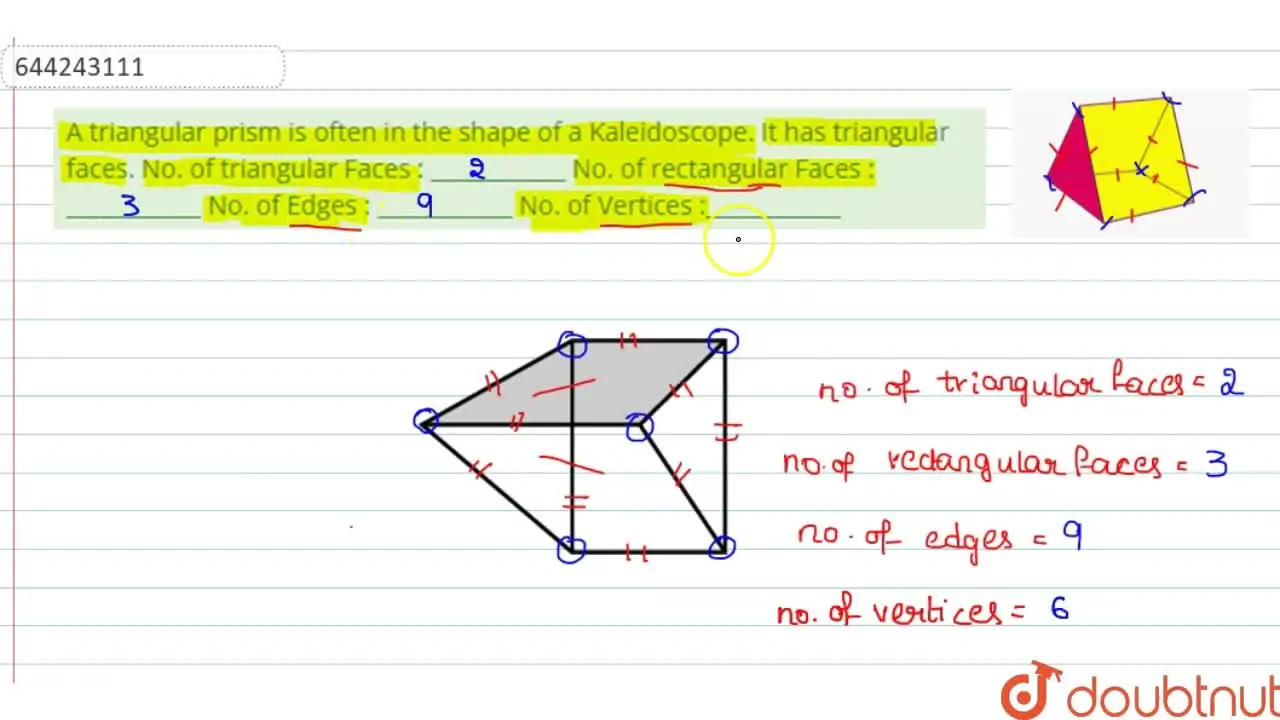 644243111
A triangular prism is often in the shape of a Kaleidoscope. It has triangular
faces. No. of triangular Faces : 2 No. of rectangular Faces :
3 No. of Edges : 9 No. of Vertices :
no. of triangular faces = 2
no. of rectangular faces = 3
no. of edges = 9
no. of vertices = 6
doubtnut